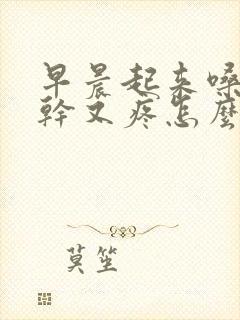 早晨起来嗓
幹又疼怎麼
莫笙